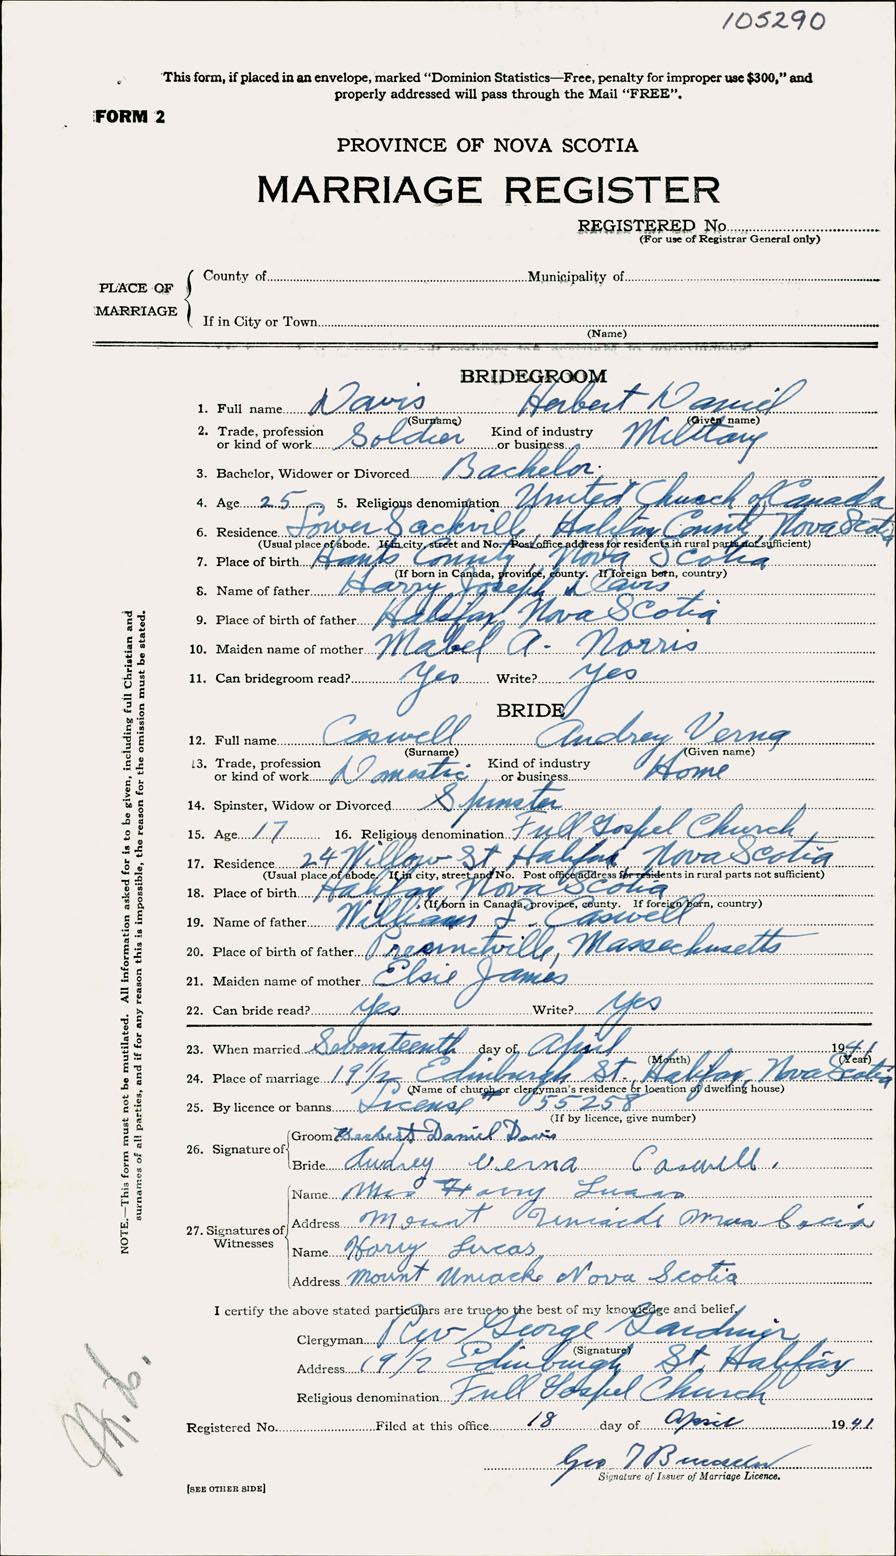 105290
This form, if placed in an envelope, marked “Dominion Statistics—Free, penalty for improper use $300,” and
properly addressed will pass through the Mail “FREE”.
FORM 2
PROVINCE OF NOVA SCOTIA
MARRIAGE REGISTER
REGISTERED No.
(For use of Registrar General only)
PLACE OF MARRIAGE
County of Municipality of
If in City or Town
(Name)
BRIDEGROOM
1. Full name Davis Herbert Daniel
(Surname) (Given name)
2. Trade, profession or kind of work Soldier Kind of industry or business Military
3. Bachelor, Widower or Divorced Bachelor
4. Age 25 5. Religious denomination United Church of Canada
6. Residence Lower Sackvill, Halifax County, Nova Scotia
(Usual place of abode. If in city, street and No. Post office address for residents in rural parts not sufficient)
7. Place of birth Hants County, Nova Scotia
(If born in Canada, province, county. If foreign born, country)
8. Name of father Harry Joseph Davis
9. Place of birth of father Halifax, Nova Scotia
10. Maiden name of mother Mabel A. Norris
11. Can bridegroom read? Yes Write? Yes
BRIDE
12. Full name Caswell Audrey Verna
(Surname) (Given name)
13. Trade, profession or kind of work Domestic Kind of industry or business Home
14. Spinster, Widow or Divorced Spinster
15. Age 17 16. Religious denomination Full Gospel Church
17. Residence 24 Willow St Halifax, Nova Scotia
(Usual place of abode. If in city, street and No. Post office address for residents in rural parts not sufficient)
18. Place of birth Halifax, Nova Scotia
(If born in Canada, province, county. If foreign born, country)
19. Name of father William F. Caswell
20. Place of birth of father Massachusetts
21. Maiden name of mother Elsie James
22. Can bride read? Yes Write? Yes
23. When married Seventeenth day of April 1941
(Month) (Year)
24. Place of marriage 19 1/2 Edinburgh St. Halifax, Nova Scotia
(Name of church or clergyman's residence or location of dwelling house)
25. By licence or banns License # 55258
(If by licence, give number)
26. Signature of Groom Herbert Daniel Davis
Bride Audrey Verna Caswell.
27. Signatures of Witnesses
Name Mrs Harry Lucas
Address Mount Uniacke Nova Scocia
Name Harry Lucas
Address Mount Uniacke Nova Scotia
I certify the above stated particulars are true to the best of my knowledge and belief.
Clergyman Rev George Gardner
(Signature)
Address 19 1/2 Edinburgh St, Halifax
Religious denomination Full Gospel Church
Registered No. Filed at this office 18 day of April 1941
Geo
Signature of Issuer of Marriage Licence.
[SEE OTHER SIDE]
NOTE.—This form must not be mutilated. All information asked for is to be given, including full Christian and
surnames of all parties, and if for any reason this is impossible, the reason for the omission must be stated.